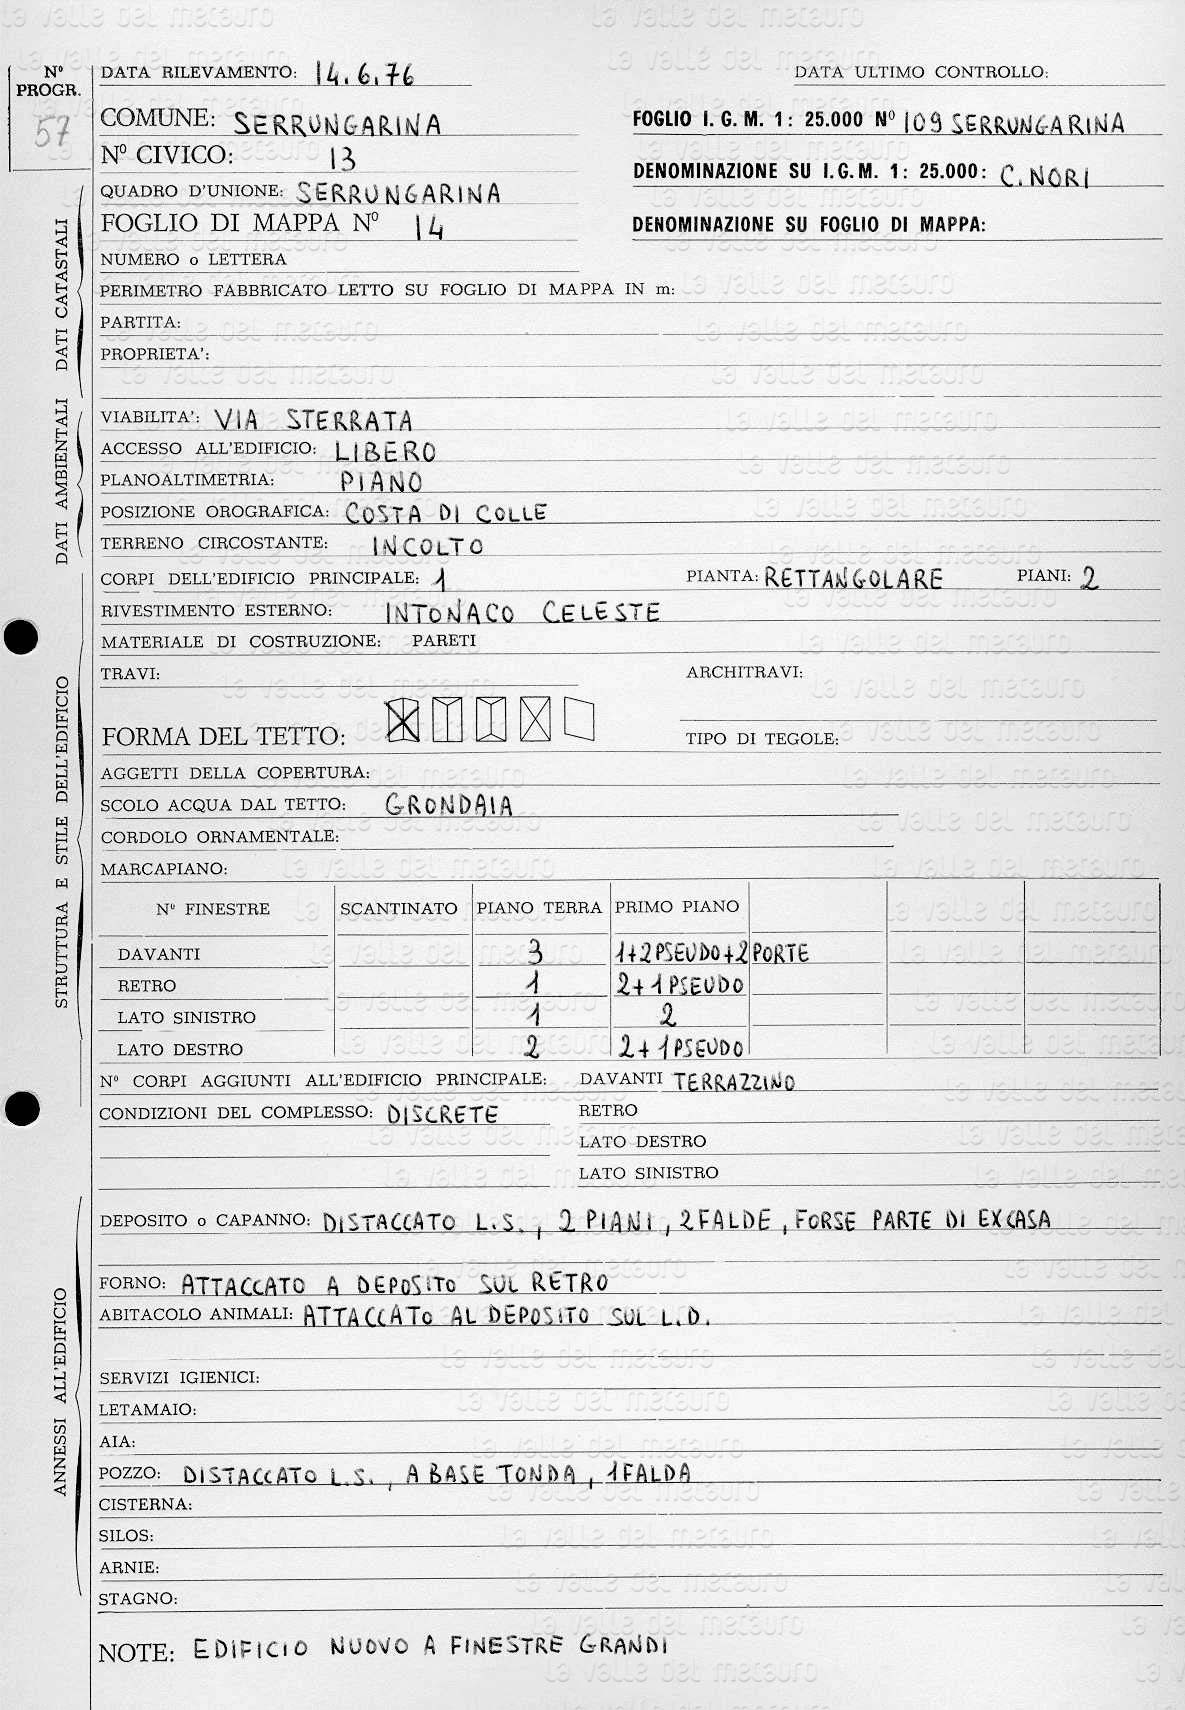 la valle del metauro
Nº PROGR.
57
DATA RILEVAMENTO: 14.6.76
DATA ULTIMO CONTROLLO:
COMUNE: SERRUNGARINA
FOGLIO I. G. M. 1: 25.000 Nº 109 SERRUNGARINA
Nº CIVICO: 13
DENOMINAZIONE SU I.G.M. 1: 25.000: C. NORI
QUADRO D'UNIONE: SERRUNGARINA
FOGLIO DI MAPPA Nº 14
DENOMINAZIONE SU FOGLIO DI MAPPA:
DATI CATASTALI
NUMERO o LETTERA
PERIMETRO FABBRICATO LETTO SU FOGLIO DI MAPPA IN m:
PARTITA:
PROPRIETA':
DATI AMBIENTALI
VIABILITA': VIA STERRATA
ACCESSO ALL'EDIFICIO: LIBERO
PLANOALTIMETRIA: PIANO
POSIZIONE OROGRAFICA: COSTA DI COLLE
TERRENO CIRCOSTANTE: INCOLTO
STRUTTURA E STILE DELL'EDIFICIO
CORPI DELL'EDIFICIO PRINCIPALE: 1 PIANTA: RETTANGOLARE PIANI: 2
RIVESTIMENTO ESTERNO: INTONACO CELESTE
MATERIALE DI COSTRUZIONE: PARETI
TRAVI: ARCHITRAVI:
FORMA DEL TETTO: TIPO DI TEGOLE:
AGGETTI DELLA COPERTURA:
SCOLO ACQUA DAL TETTO: GRONDAIA
CORDOLO ORNAMENTALE:
MARCAPIANO:
Nº FINESTRE SCANTINATO PIANO TERRA PRIMO PIANO
DAVANTI 3 1+2 PSEUDO+2 PORTE
RETRO 1 2+1 PSEUDO
LATO SINISTRO 1 2
LATO DESTRO 2 2+1 PSEUDO
Nº CORPI AGGIUNTI ALL'EDIFICIO PRINCIPALE: DAVANTI TERRAZZINO
CONDIZIONI DEL COMPLESSO: DISCRETE RETRO
LATO DESTRO
LATO SINISTRO
ANNESSI ALL'EDIFICIO
DEPOSITO o CAPANNO: DISTACCATO L.S., 2 PIANI, 2 FALDE, FORSE PARTE DI EX CASA
FORNO: ATTACCATO A DEPOSITO SUL RETRO
ABITACOLO ANIMALI: ATTACCATO AL DEPOSITO SUL L.D.
SERVIZI IGIENICI:
LETAMAIO:
AIA:
POZZO: DISTACCATO L.S., A BASE TONDA, 1 FALDA
CISTERNA:
SILOS:
ARNIE:
STAGNO:
NOTE: EDIFICIO NUOVO A FINESTRE GRANDI